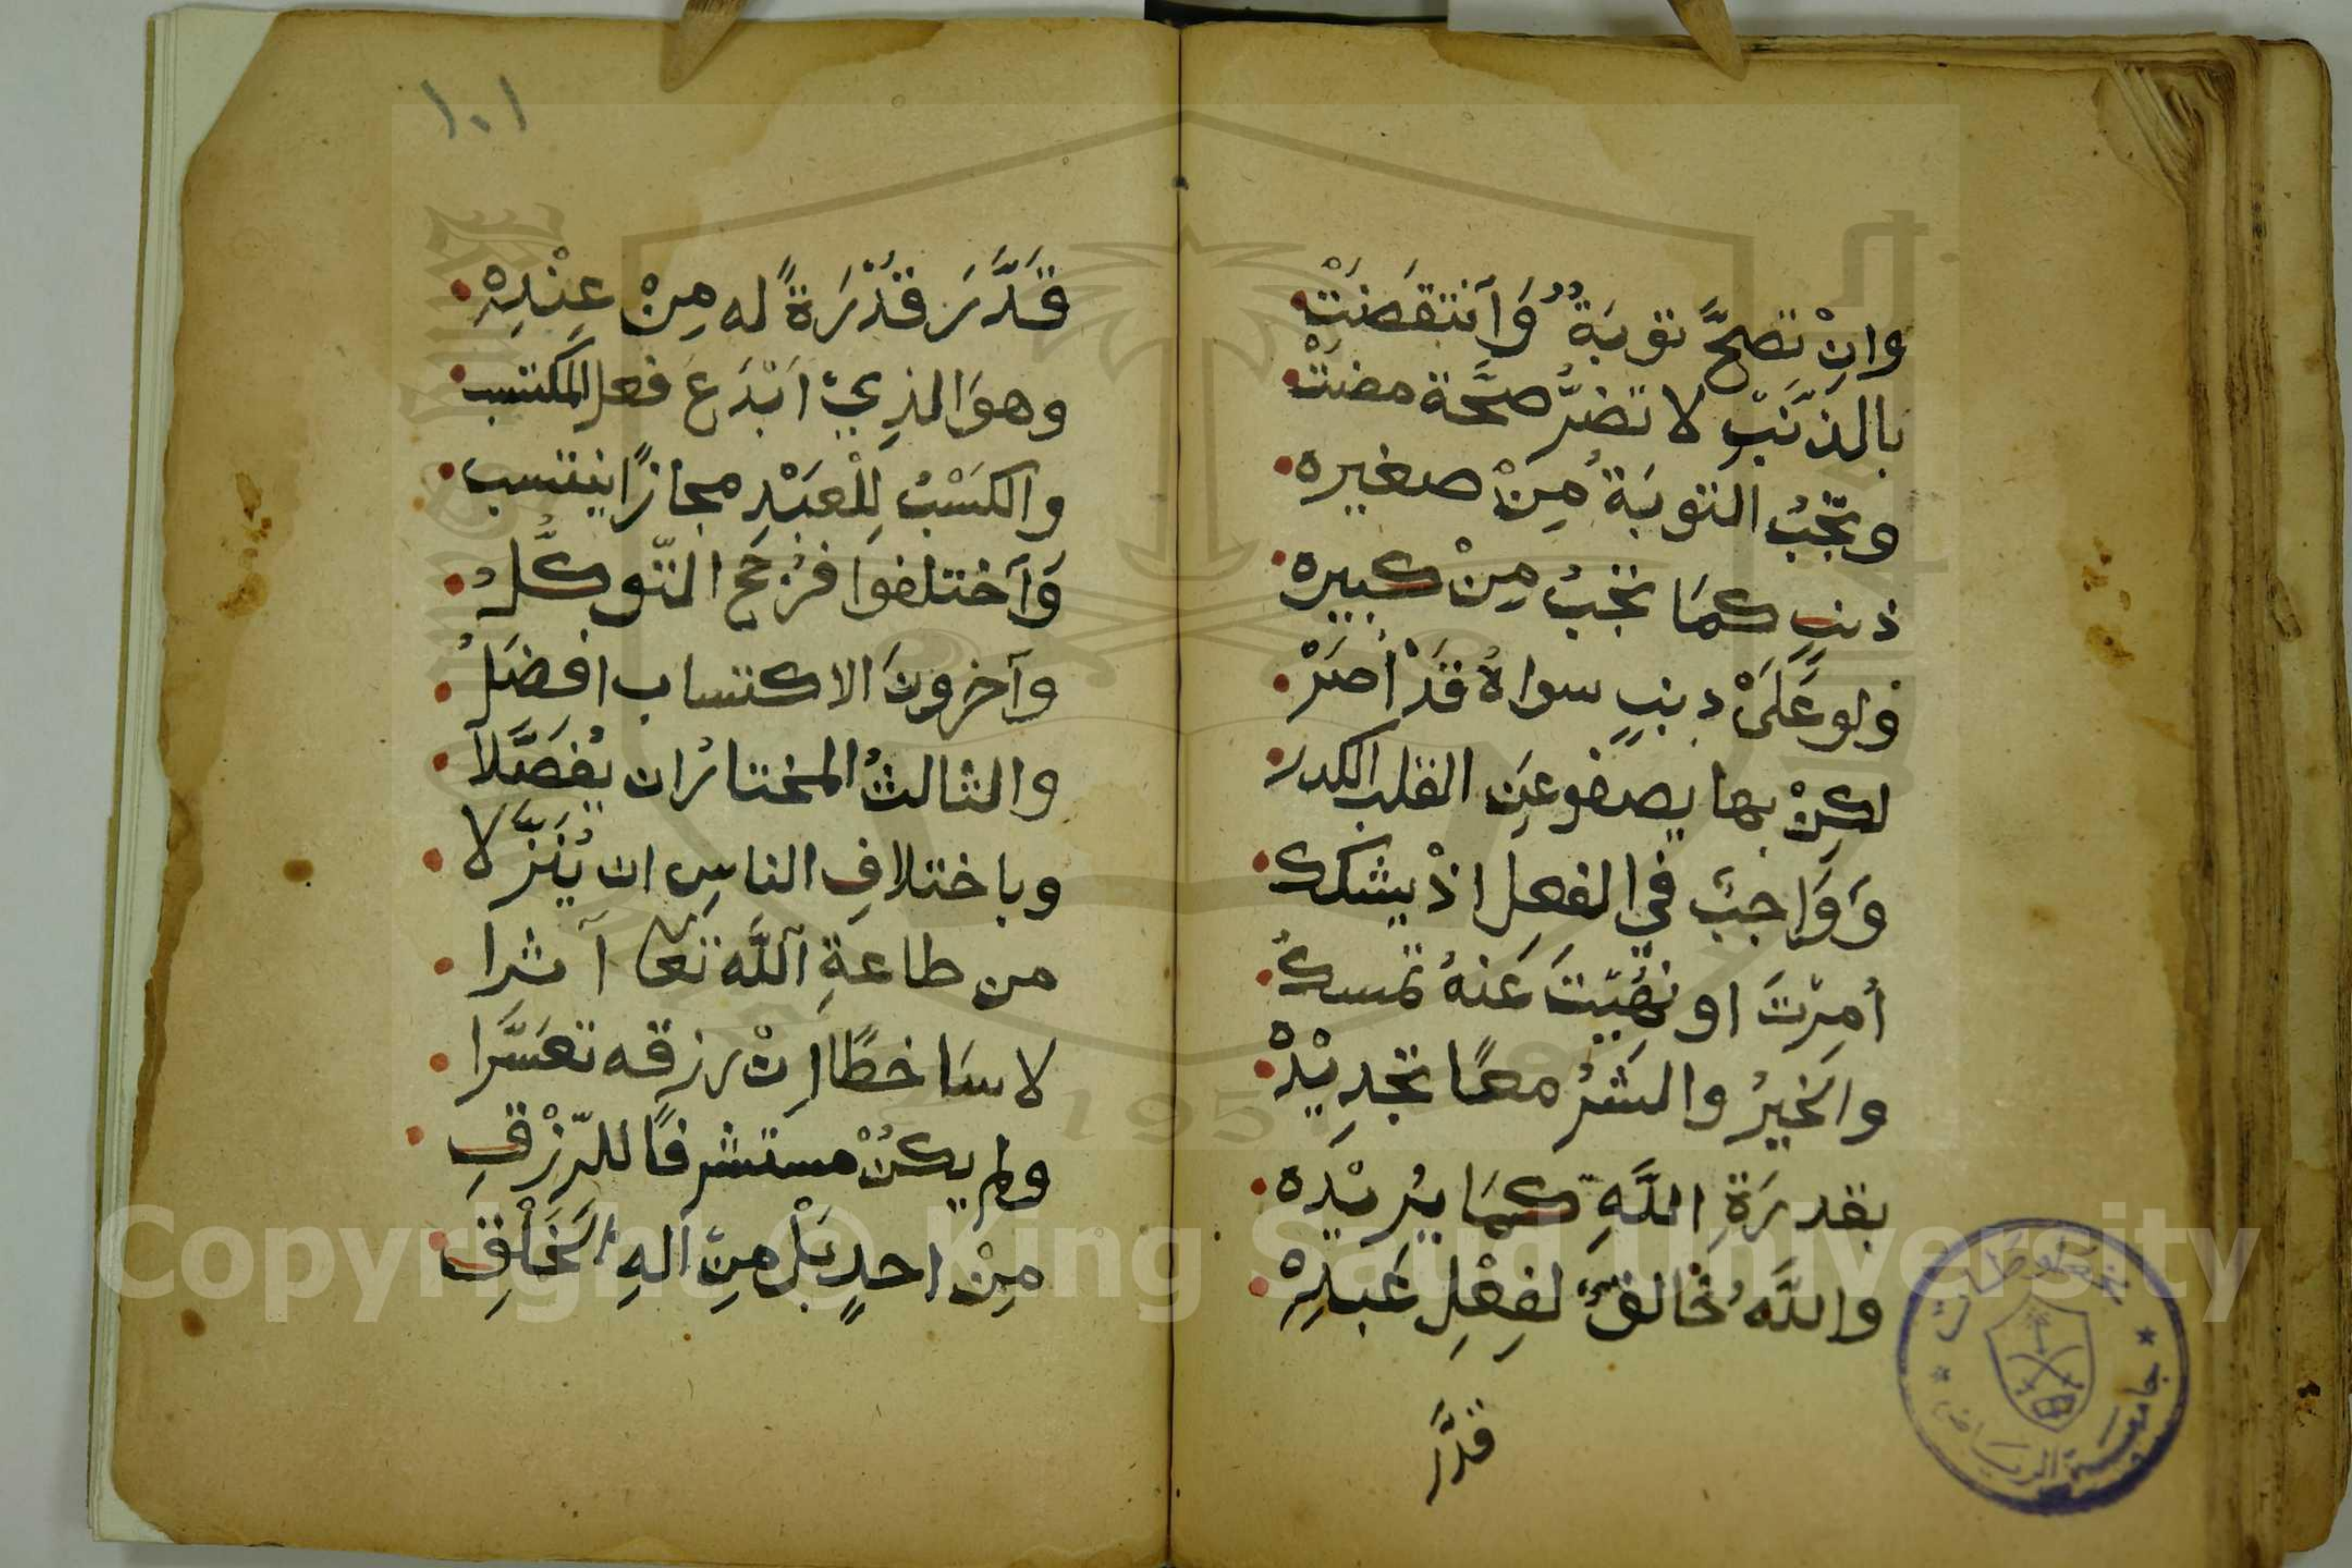 وانْ تصحَّ توبَةٌ وَانتقَضَتْ
بالذَّنبِ لا تضرُّ صحَّة مضتْ
وتجبُ التوبَةُ مِنْ صغيره
ذنبٍ كمَا تجبُ مِنْ كبيره
ولو عَلَىْ ذنبٍ سواهُ قدْ أصَرْ
لكنْ بها يصفو عَنِ القلب الكدر
وَوَاجبٌ في الفعلِ اذْ يشككُ
أُمِرْتَ او نُهيتَ عَنهُ تمسكُ
والخيرُ والشرُ معًا تجدِيْدُهْ
بقدرَةِ اللَّهِ كمَا يُريْدُه
واللَّهُ خَالقٌ لفِعْلِ عَبدِهْ
قدَّر
١٠١
قَدَّرَ قُدْرَةً له مِنْ عِنْدِهْ
وهوَ الذِي ابْدَعَ فعل المكتسب
والكسْبُ لِلْعَبْدِ مجازًا ينتسب
وَاختلفوا فرُجّحَ التّوكُّلُ
وآخرونَ الاكتساب افضَلُ
والثالثُ المختارُ ان يُفصَّلا
وباختلافِ الناسِ ان يُنَزَّلا
من طاعةِ اللَّه تعالى آثرا
لا سَاخطًا انْ رزقه تعَسَّرا
ولم يكنْ مستشرفًا للرّزْقِ
مِنْ احدٍ بَلْ مِنَ الهِ الخَلْقِ
مخطوطات
جامعة الرياض
1957
Copyright © King Saud University